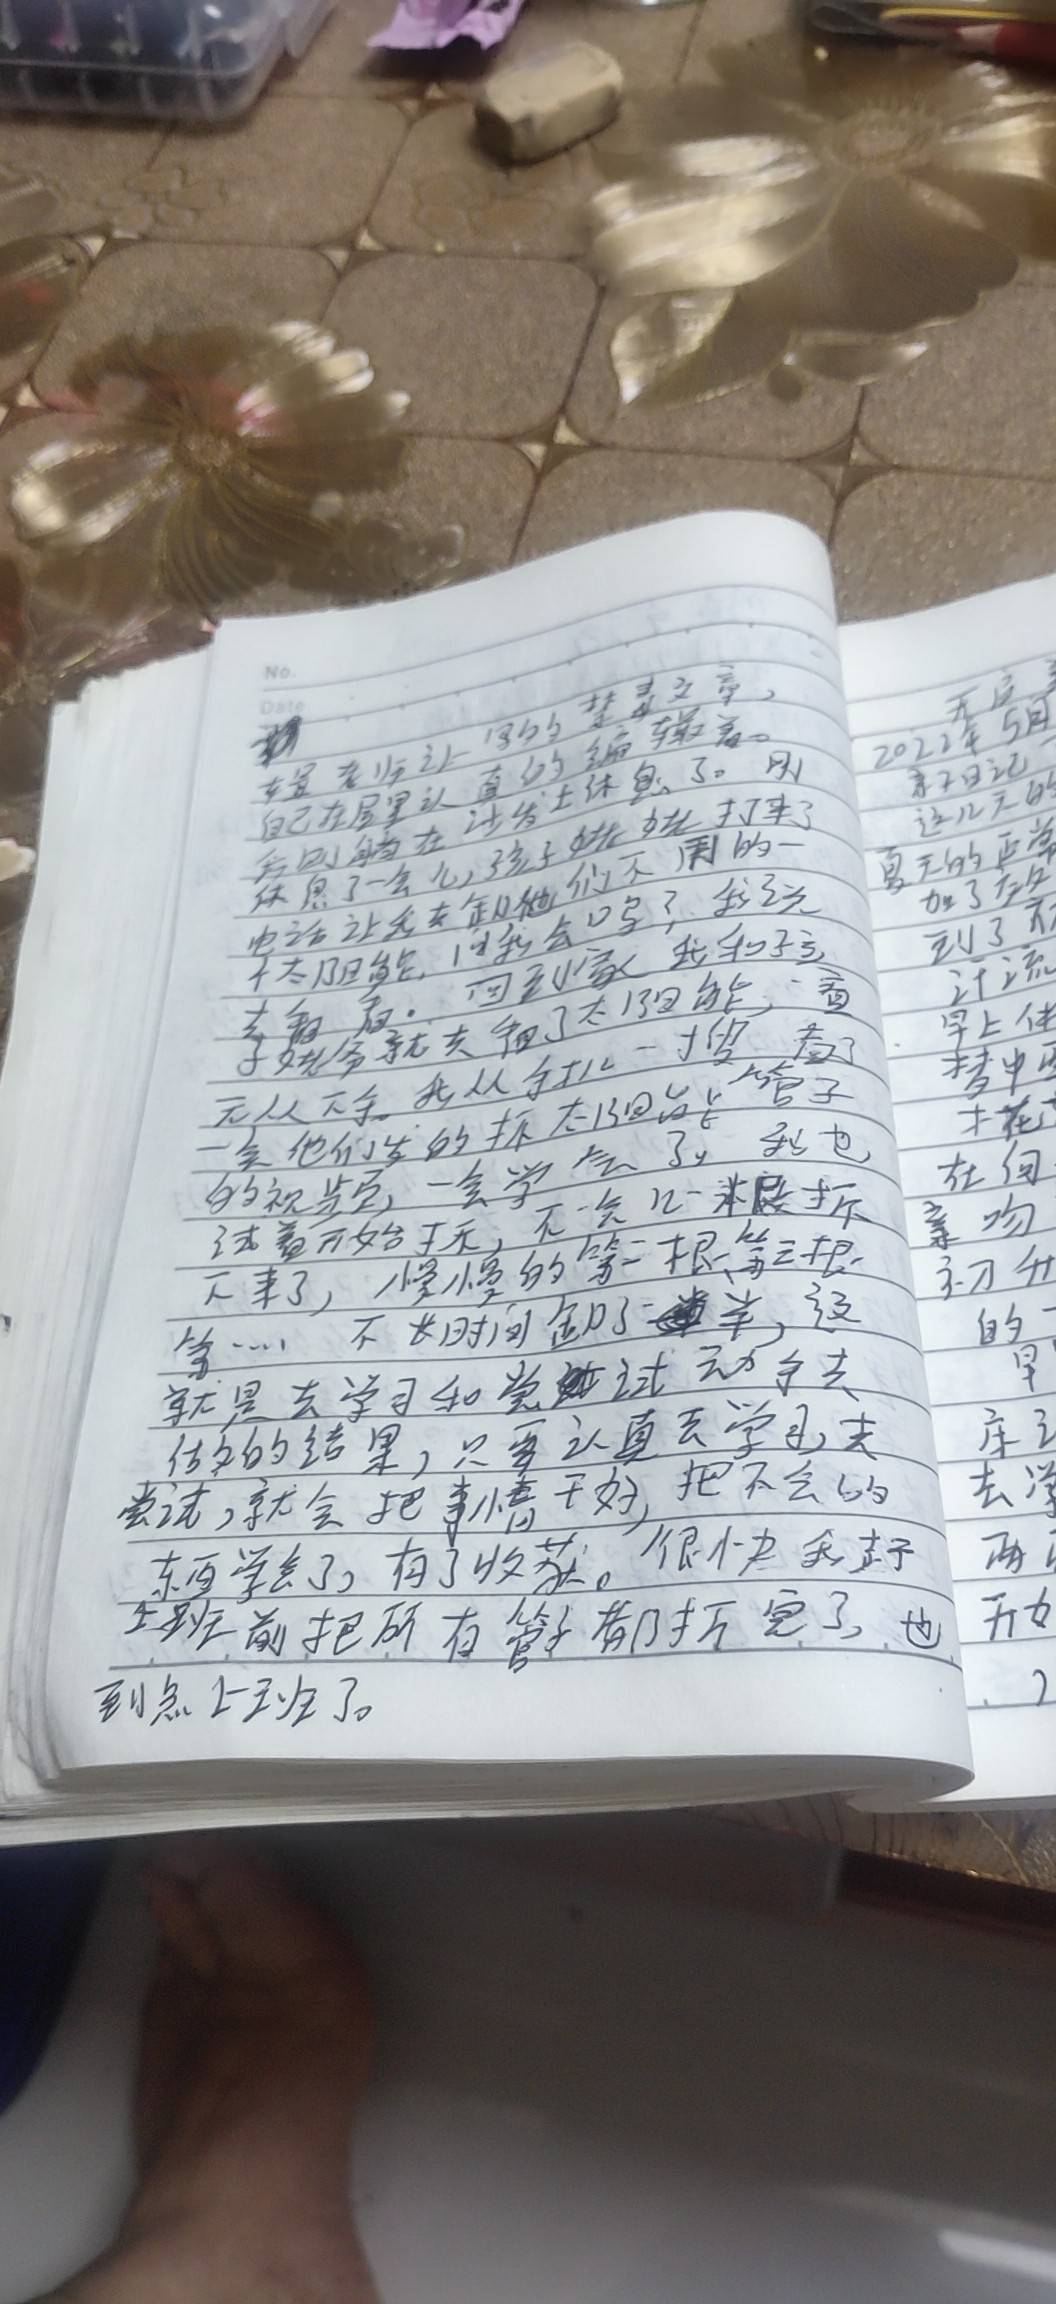 No.
Date
是老师让写的 文章,
自己在屋里认真的编辑着。
我则躺在沙发上休息了。刚
休息了一会儿,孩子姥姥打来了
电话让我去卸他们不用的一
个太阳能,问我会吗?我说
去看看。回到家我和孩
子姥爷就去卸了太阳能,一看
无从下手。我从手机一搜,看了
一会他们发的拆太阳能管子
的视频,一会学会了。我也
试着开始拆,不一会儿一根拆
下来了,慢慢的第二根、第三根
等…… 不长时间卸了一半,这
就是去学习和尝试动手去
做的结果,只要认真去学习,去
尝试,就会把事情干好,把不会的
东西学会了,有了收获。很快我赶
上班前把所有管子都拆完了,也
到点上班了。
2022年5月
亲子日记
这几天的
夏天的正常
加了
到了
汁流
早上
梦中
在何
亲吻
初升
的一
早
床
去
两
开女